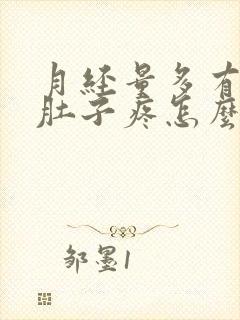 月经量多有
肚子疼怎麽
邹墨1